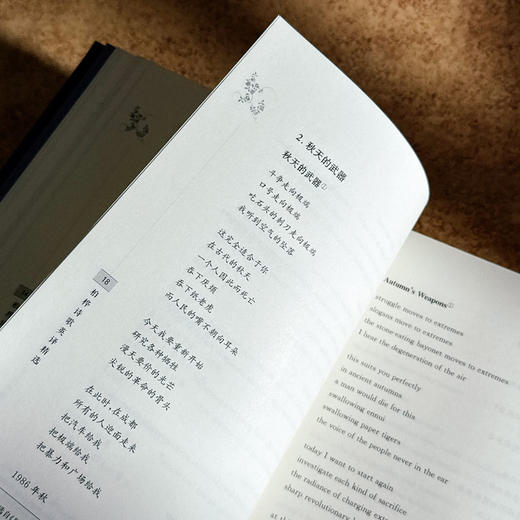 2. 秋天的武器
秋天的武器①
斗争走向极端
口号走向极端
吃石头的刺刀走向极端
我听到空气的坠落
这完全适合于你
在古代的秋天
一个人因此而死亡
吞下厌烦
吞下纸老虎
而人民的嘴不朝向耳朵
今天我要重新开始
研究各种牺牲
漫天要价的光芒
尖锐的革命的骨头
在此时，在成都
所有的人迎面走来
把汽车给我
把极端给我
把暴力和广场给我
1986 年秋
18
柏桦诗歌英译精选
Autumn's Weapons①
struggle moves to extremes
slogans move to extremes
the stone-eating bayonet moves to extremes
I hear the degeneration of the air
this suits you perfectly
in ancient autumns
a man would die for this
swallowing ennui
swallowing paper tigers
the voice of the people never in the ear
today I want to start again
investigate each kind of sacrifice
the radiance of charging
sharp revolutionary